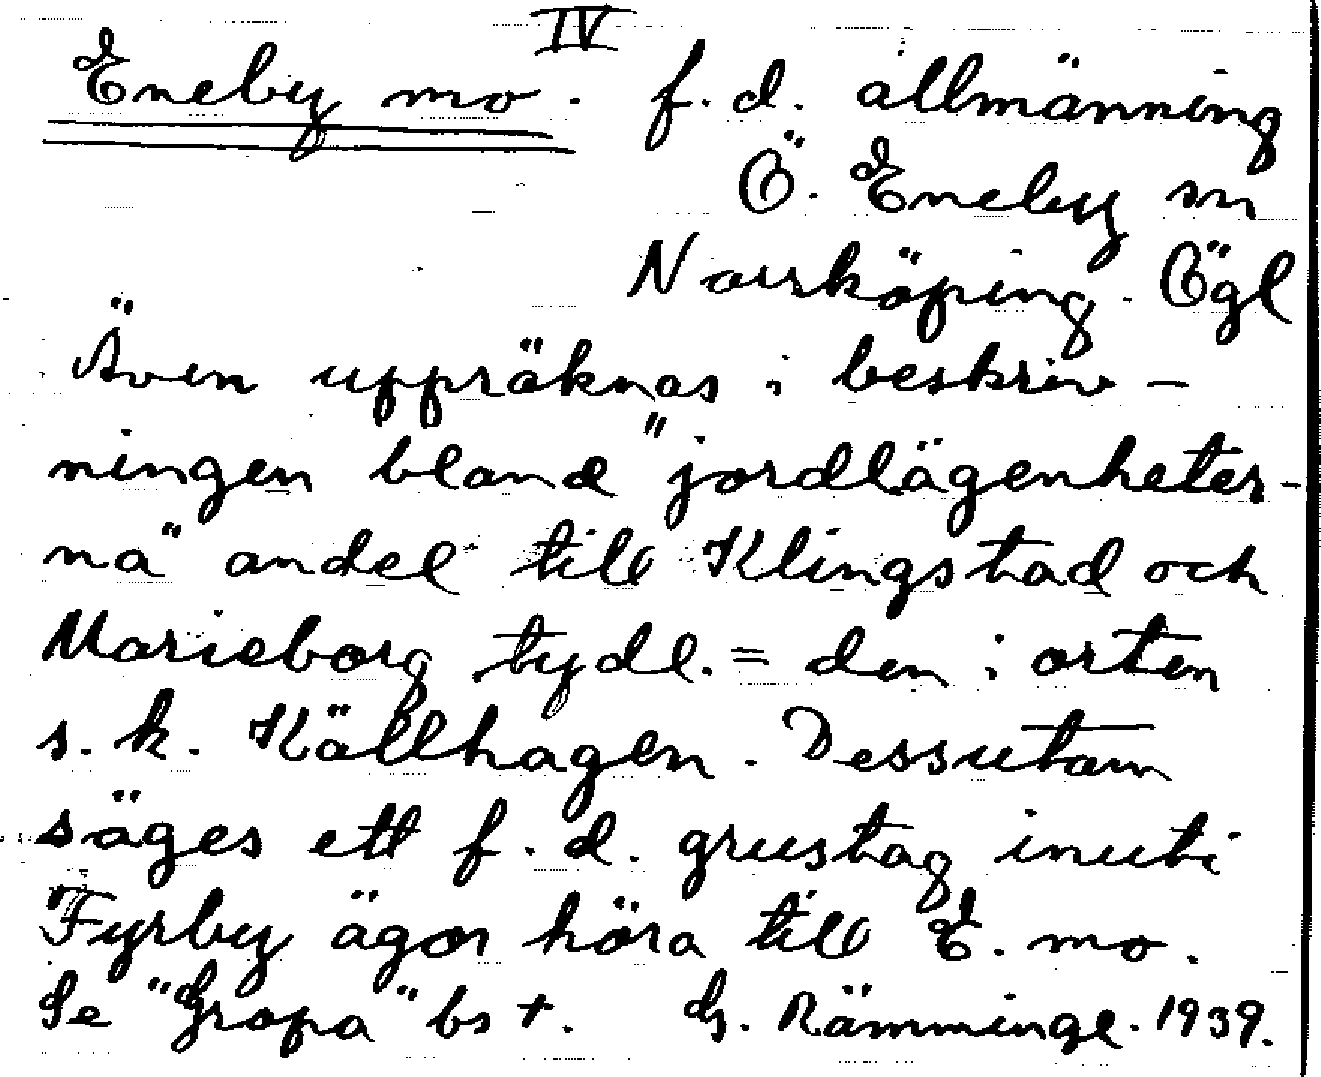 IV
Eneby mo. f.d. allmänning
Ö. Eneby sn
Norrköping. Ögl
Även uppräknas i beskriv-
ningen bland "jordlägenheter-
na" andel till Klingstad och
Marieborg tydl. = den i orten
s.k. Källhagen. Dessutom
säges ett f.d. grustag inuti
Fyrby ägor höra till E. mo.
Se "Gropa" bs +. G. Rämminge. 1939.